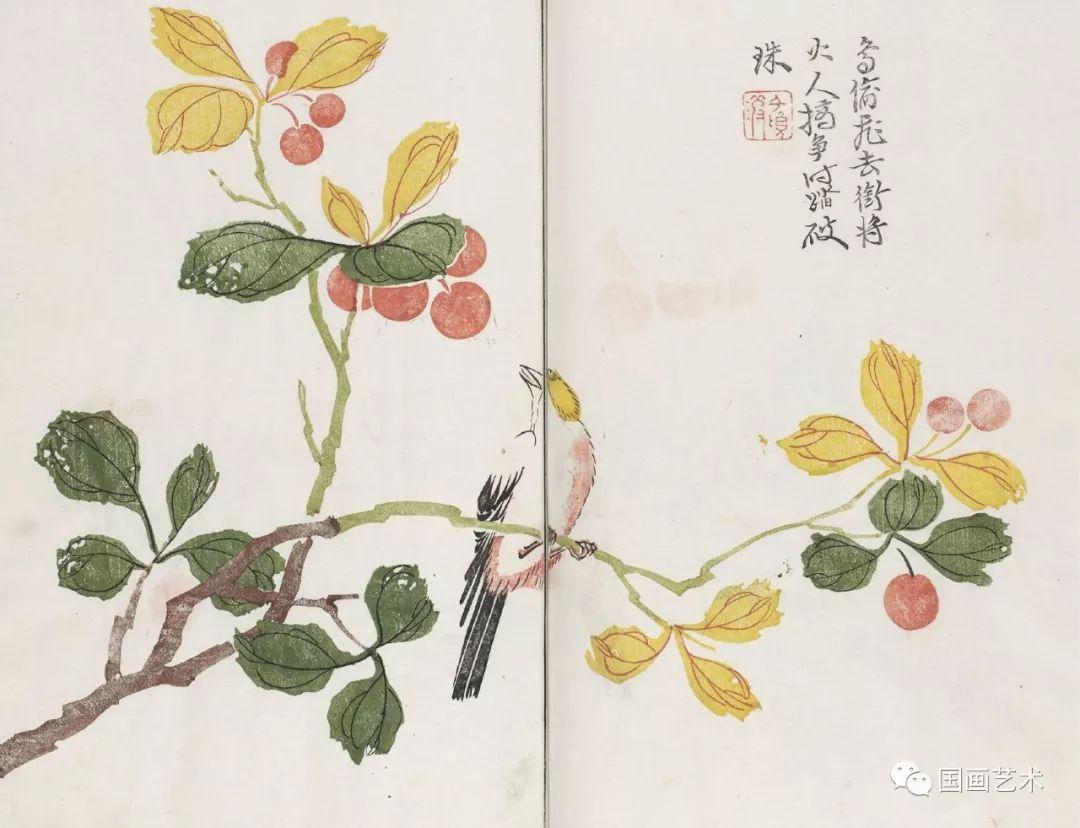 鳥偷飛去銜将
火人摘争时踏破
珠
国画艺术